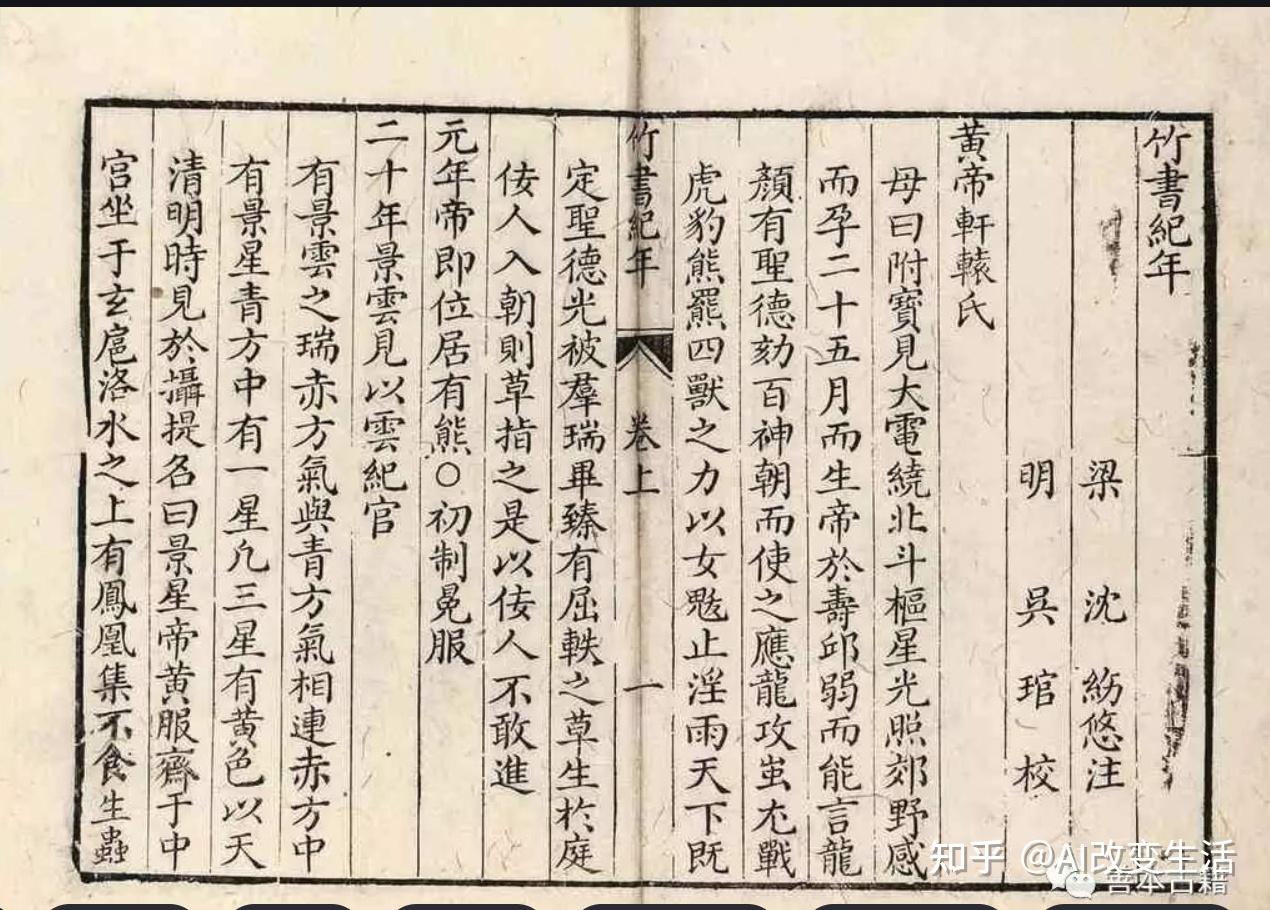 竹書紀年
梁 沈 紛悠注
明 吳 琯 校
黃帝軒轅氏
母曰附寶見大電繞北斗樞星光照郊野感
而孕二十五月而生帝於壽邱弱而能言龍
顏有聖德劾百神朝而使之應龍攻蚩尤戰
虎豹熊羆四獸之力以女魃止淫雨天下既
竹書紀年 卷上 一
定聖德光被羣瑞畢臻有屈軼之草生於庭
佞人入朝則草指之是以佞人不敢進
元年帝即位居有熊○初制冕服
二十年景雲見以雲紀官
有景雲之瑞赤方氣與青方氣相連赤方中
有景星青方中有一星凡三星有黃色以天
清明時見於攝提名曰景星帝黃服齋于中
宮坐于玄扈洛水之上有鳳凰集不食生蟲
知乎 @AI改变生活
善本古籍